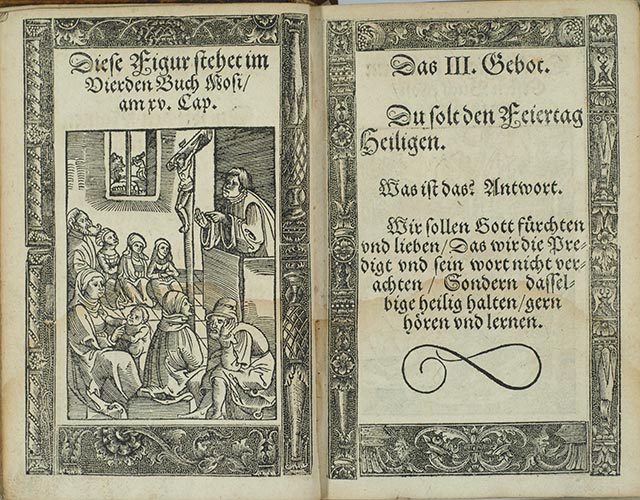 Diese Figur stehet im
Vierden Buch Mosi/
am xv. Cap.
Das III. Gebot.
Du solt den Feiertag
Heiligen.
Was ist das? Antwort.
Wir sollen Gott fürchten
vnd lieben/Das wir die Pre-
digt vnd sein wort nicht ver-
achten / Sondern dassel-
bige heilig halten/gern
hören vnd lernen.